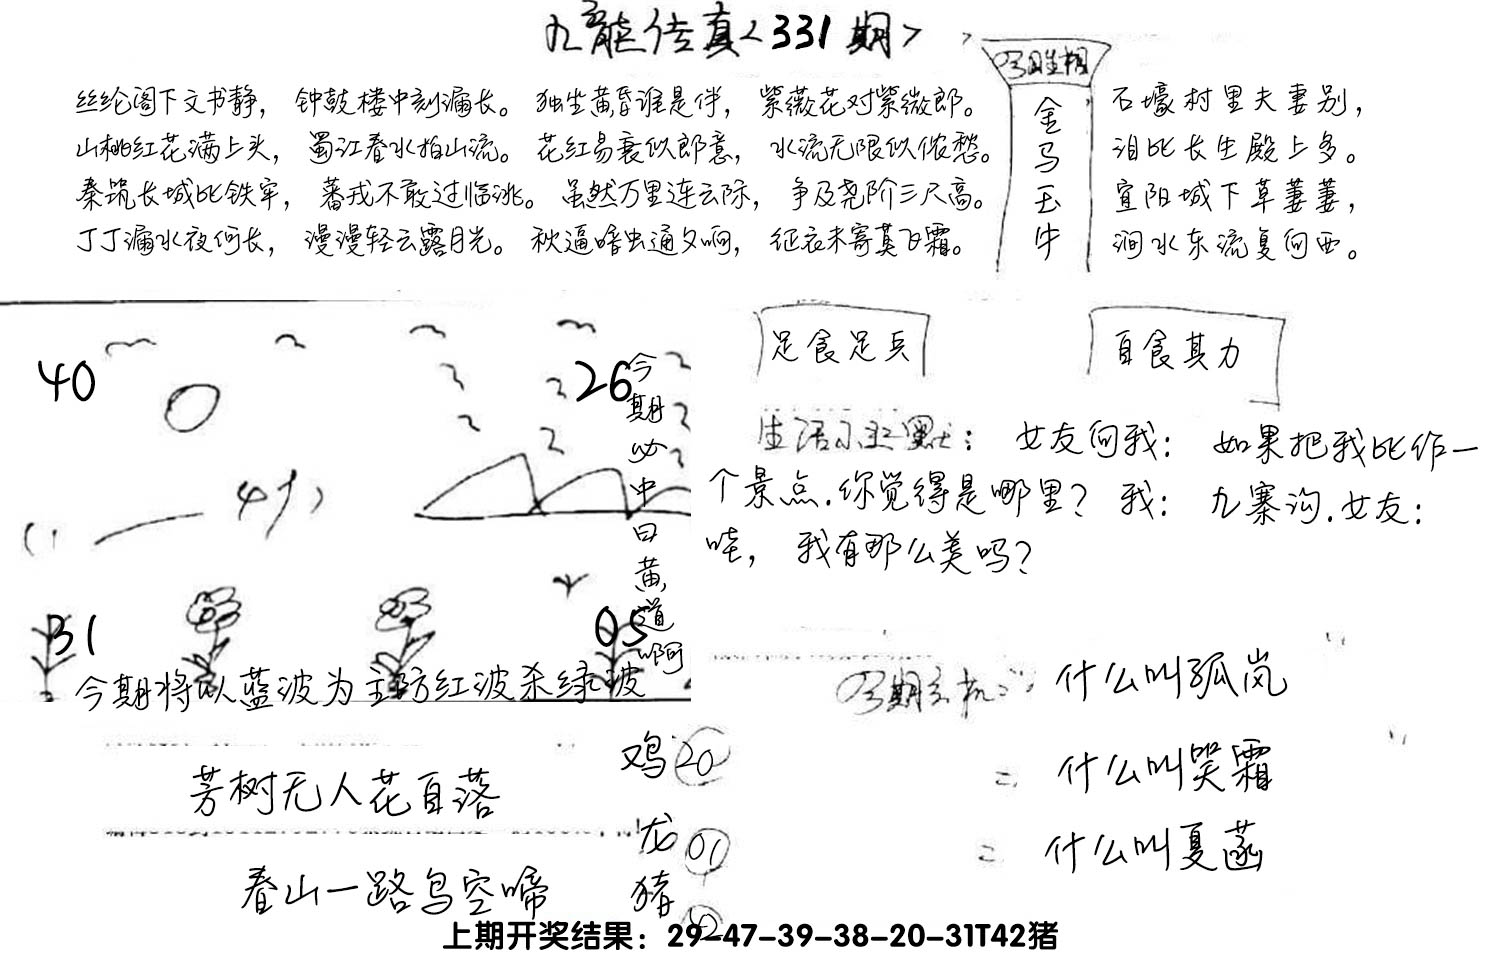 九龙传真<331期>
今日生相
金马玉牛
丝纶阁下文书静，钟鼓楼中刻漏长。独坐黄昏谁是伴，紫薇花对紫微郎。
山桃红花满上头，蜀江春水拍山流。花红易衰似郎意，水流无限似侬愁。
秦筑长城比铁牢，蕃戎不敢过临洮。虽然万里连云际，争及尧阶三尺高。
丁丁漏水夜何长，漫漫轻云露月光。秋逼暗虫通夕响，征衣未寄莫飞霜。
石壕村里夫妻别，
泪比长生殿上多。
宜阳城下草萋萋，
涧水东流复向西。
40
26
31
05
今期必中曰黄道啊
今期将以蓝波为主防红波杀绿波
足食足兵
自食其力
生活小幽默：女友问我：如果把我比作一
个景点.你觉得是哪里？我：九寨沟.女友：
哇，我有那么美吗？
什么叫孤岚
什么叫哭霜
什么叫夏菡
芳树无人花自落
春山一路鸟空啼
鸡20
龙01
猪
上期开奖结果：29-47-39-38-20-31T42猪